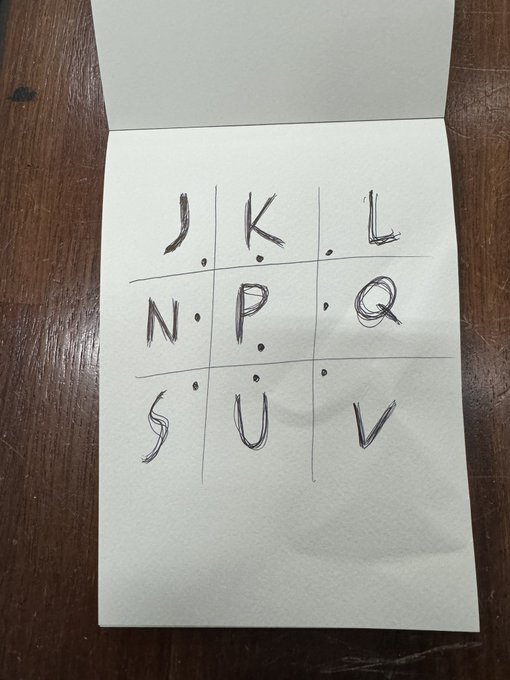 J K L
N P Q
S U V